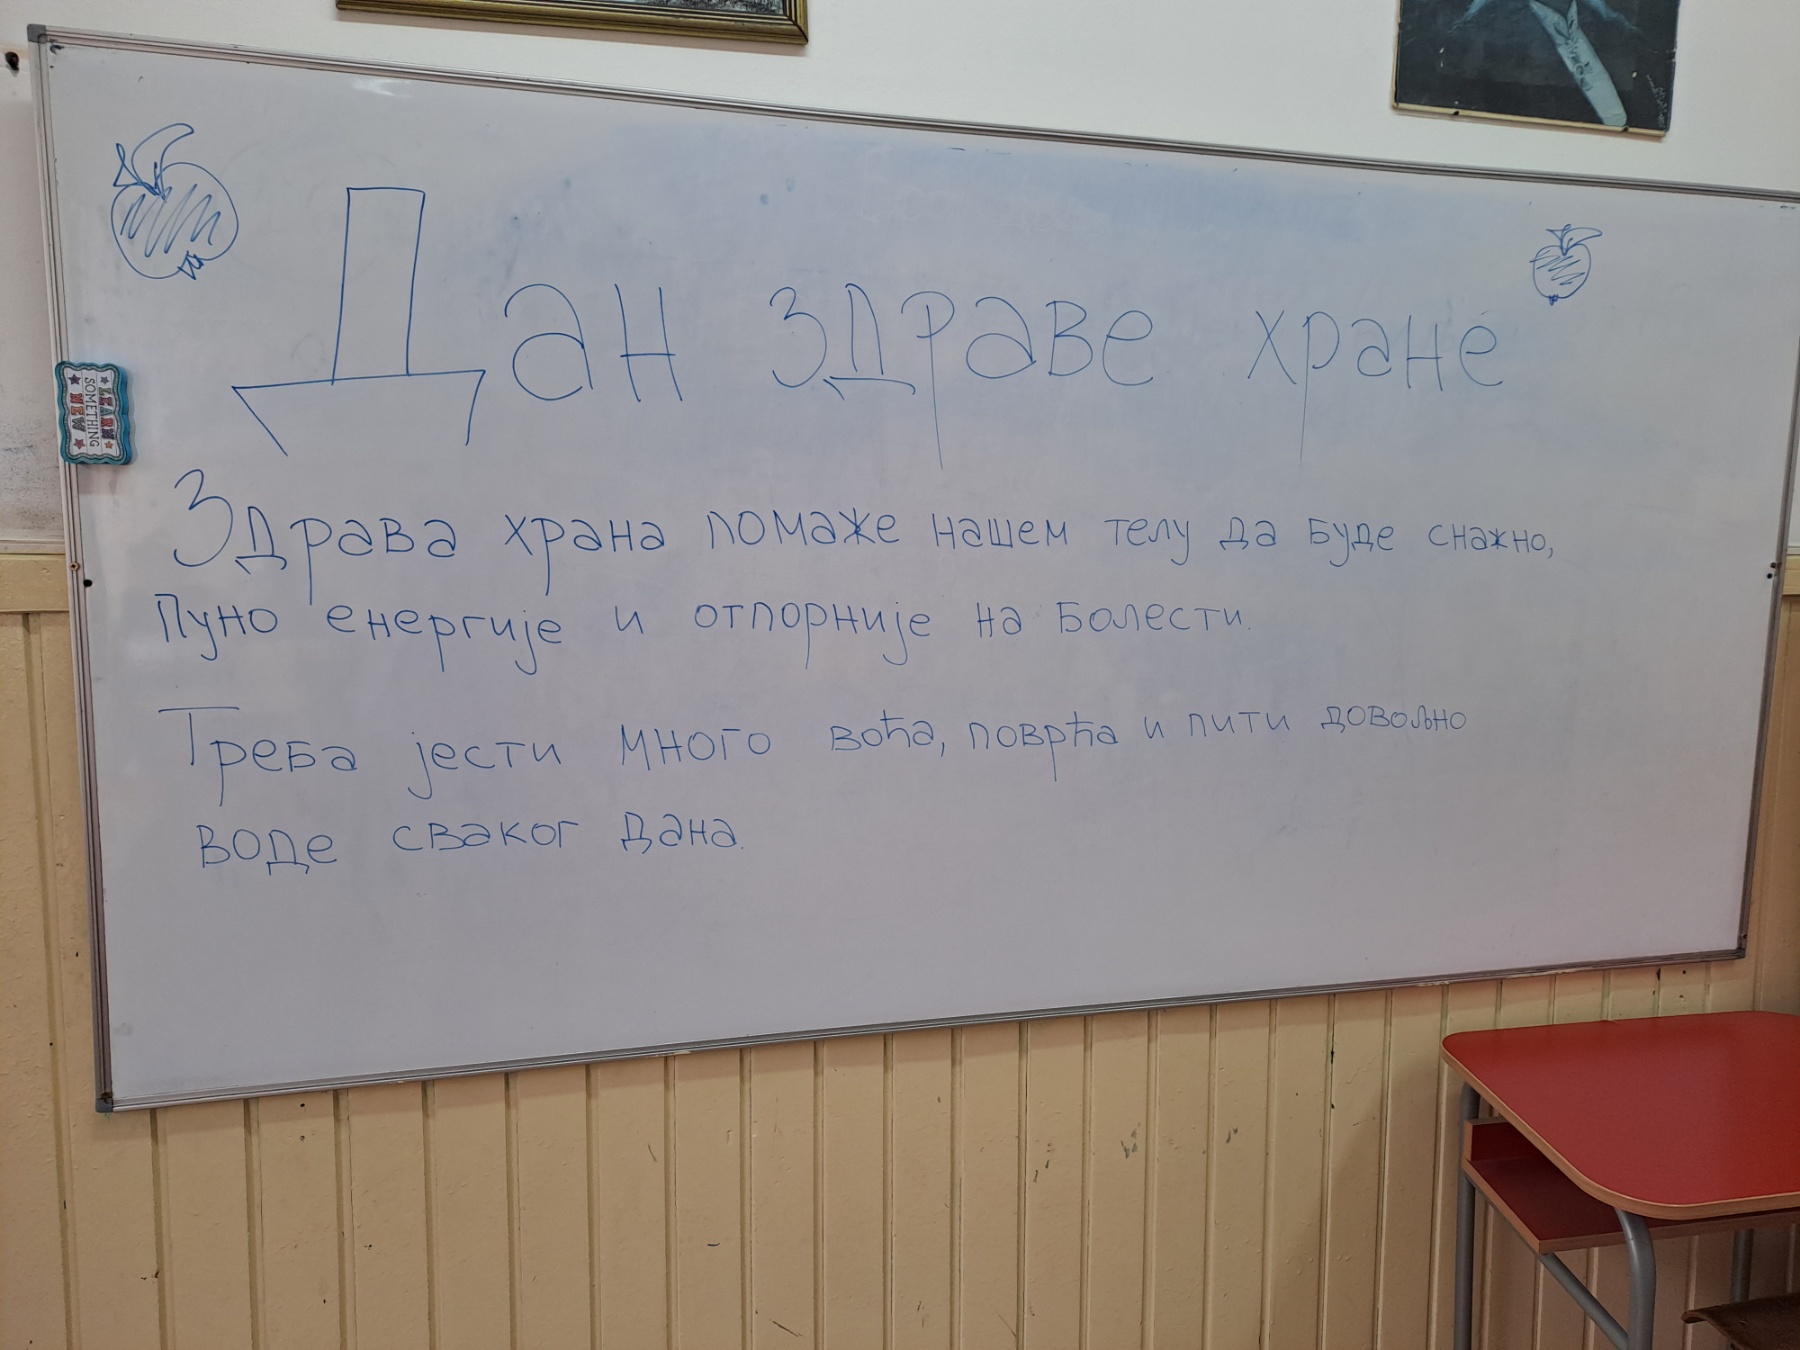 Дан здраве хране
Здрава храна помаже нашем телу да буде снажно,
пуно енергије и отпорније на болести.
Треба јести много воћа, поврћа и пити довољно
воде сваког дана.
LEARN
SOMETHING
NEW